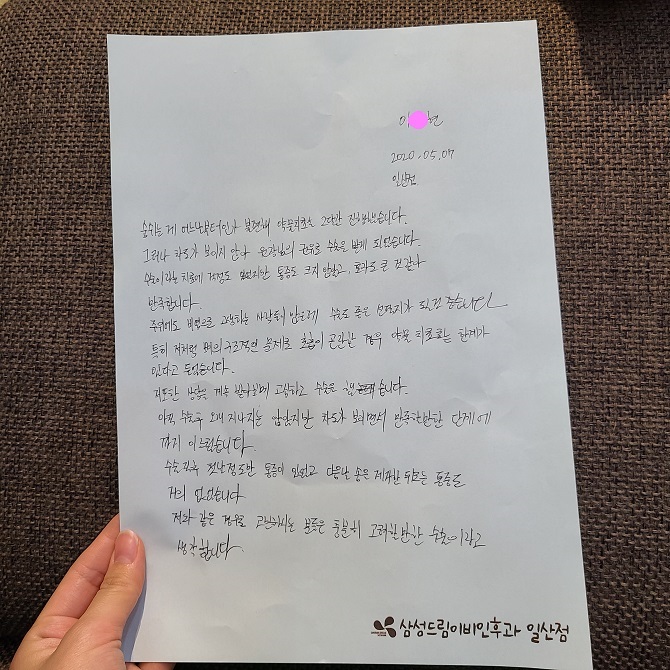 이 현
2020.05.07
일산점
숨쉬는 게 어느날부터인가 불편해 약물치료를 2년간 진행했습니다.
그러나 차도가 보이지 않아 원장님의 권유로 수술을 받게 되었습니다.
수술이라는 치료에 걱정도 있었지만 통증도 크지 않았고, 효과도 큰 것 같아
만족합니다.
주위에도 비염으로 고생하는 사람들이 많은데 수술도 좋은 선택지가 되길 좋습니다
특히 저처럼 뼈의 구조적인 문제로 호흡이 곤란한 경우 약물 치료로는 한계가
있다고 들었습니다.
지루한 계속 고심하고 수술은 했습니다.
아직 수술 후 오래 지나지는 않았지만 차도가 보이면서 만족할만한 단계에
까지 이르렀습니다.
수술 직후 첫날 정도만 통증이 있었고 다음날 솜을 제거한 뒤로는 통증도
거의 없었습니다
저와 같은 경우로 고민하시는 분들은 충분히 고려할만한 수술이라고
생각합니다.
삼성드림이비인후과 일산점